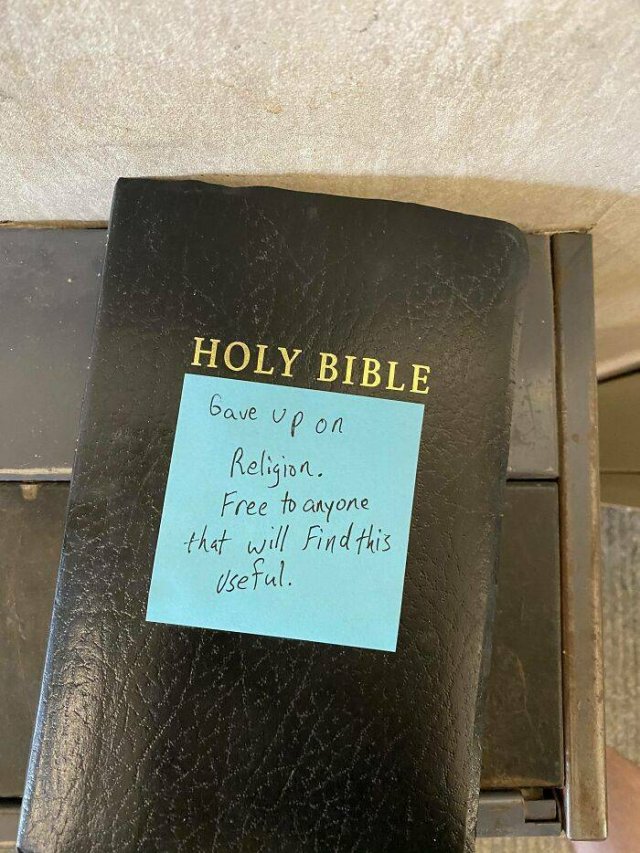 HOLY BIBLE
Gave up on
Religion.
Free to anyone
that will Find this
Useful.